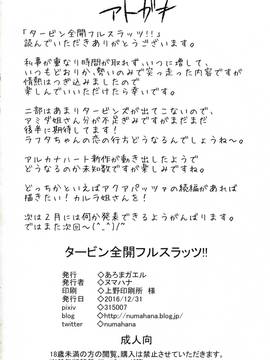 アトガキ
「タービン全開フルスラッツ!!」
読んでいただきありがとうございます。
私事が重なり時間が取れず、いつに増して、
いつもどおりか、勢いのみで突っ走った内容ですが
情熱はつぎ込みましたので
楽しんでいただけたら幸いです。
二部はあまりタービンズが出てこないので、
アミダ姐さん分が不足ぎみですがまだまだ
後半に期待してます!
ラフタちゃんの恋の行方どうなるんでしょうね〜。
アルカナハート新作が動き出したようで
どうなるのか未知数ですが楽しみです。
どっちかといえばアクアパッツァの続編があれば
描きたい!カルラ姐さんを!
次は2月には何か発表できるようがんばります。
ではまた次回〜(^_^)/~
タービン全開フルスラッツ!!
発行 ◇あろまガエル
発行者 ◇ヌマハナ
印刷 ◇上野印刷所 様
発行日 ◇2016/12/31
pixiv ◇315007
blog ◇http://numahana.blog.jp/
twitter ◇numahana
成人向
18歳未満の方の閲覧,購入は禁止させていただきます.